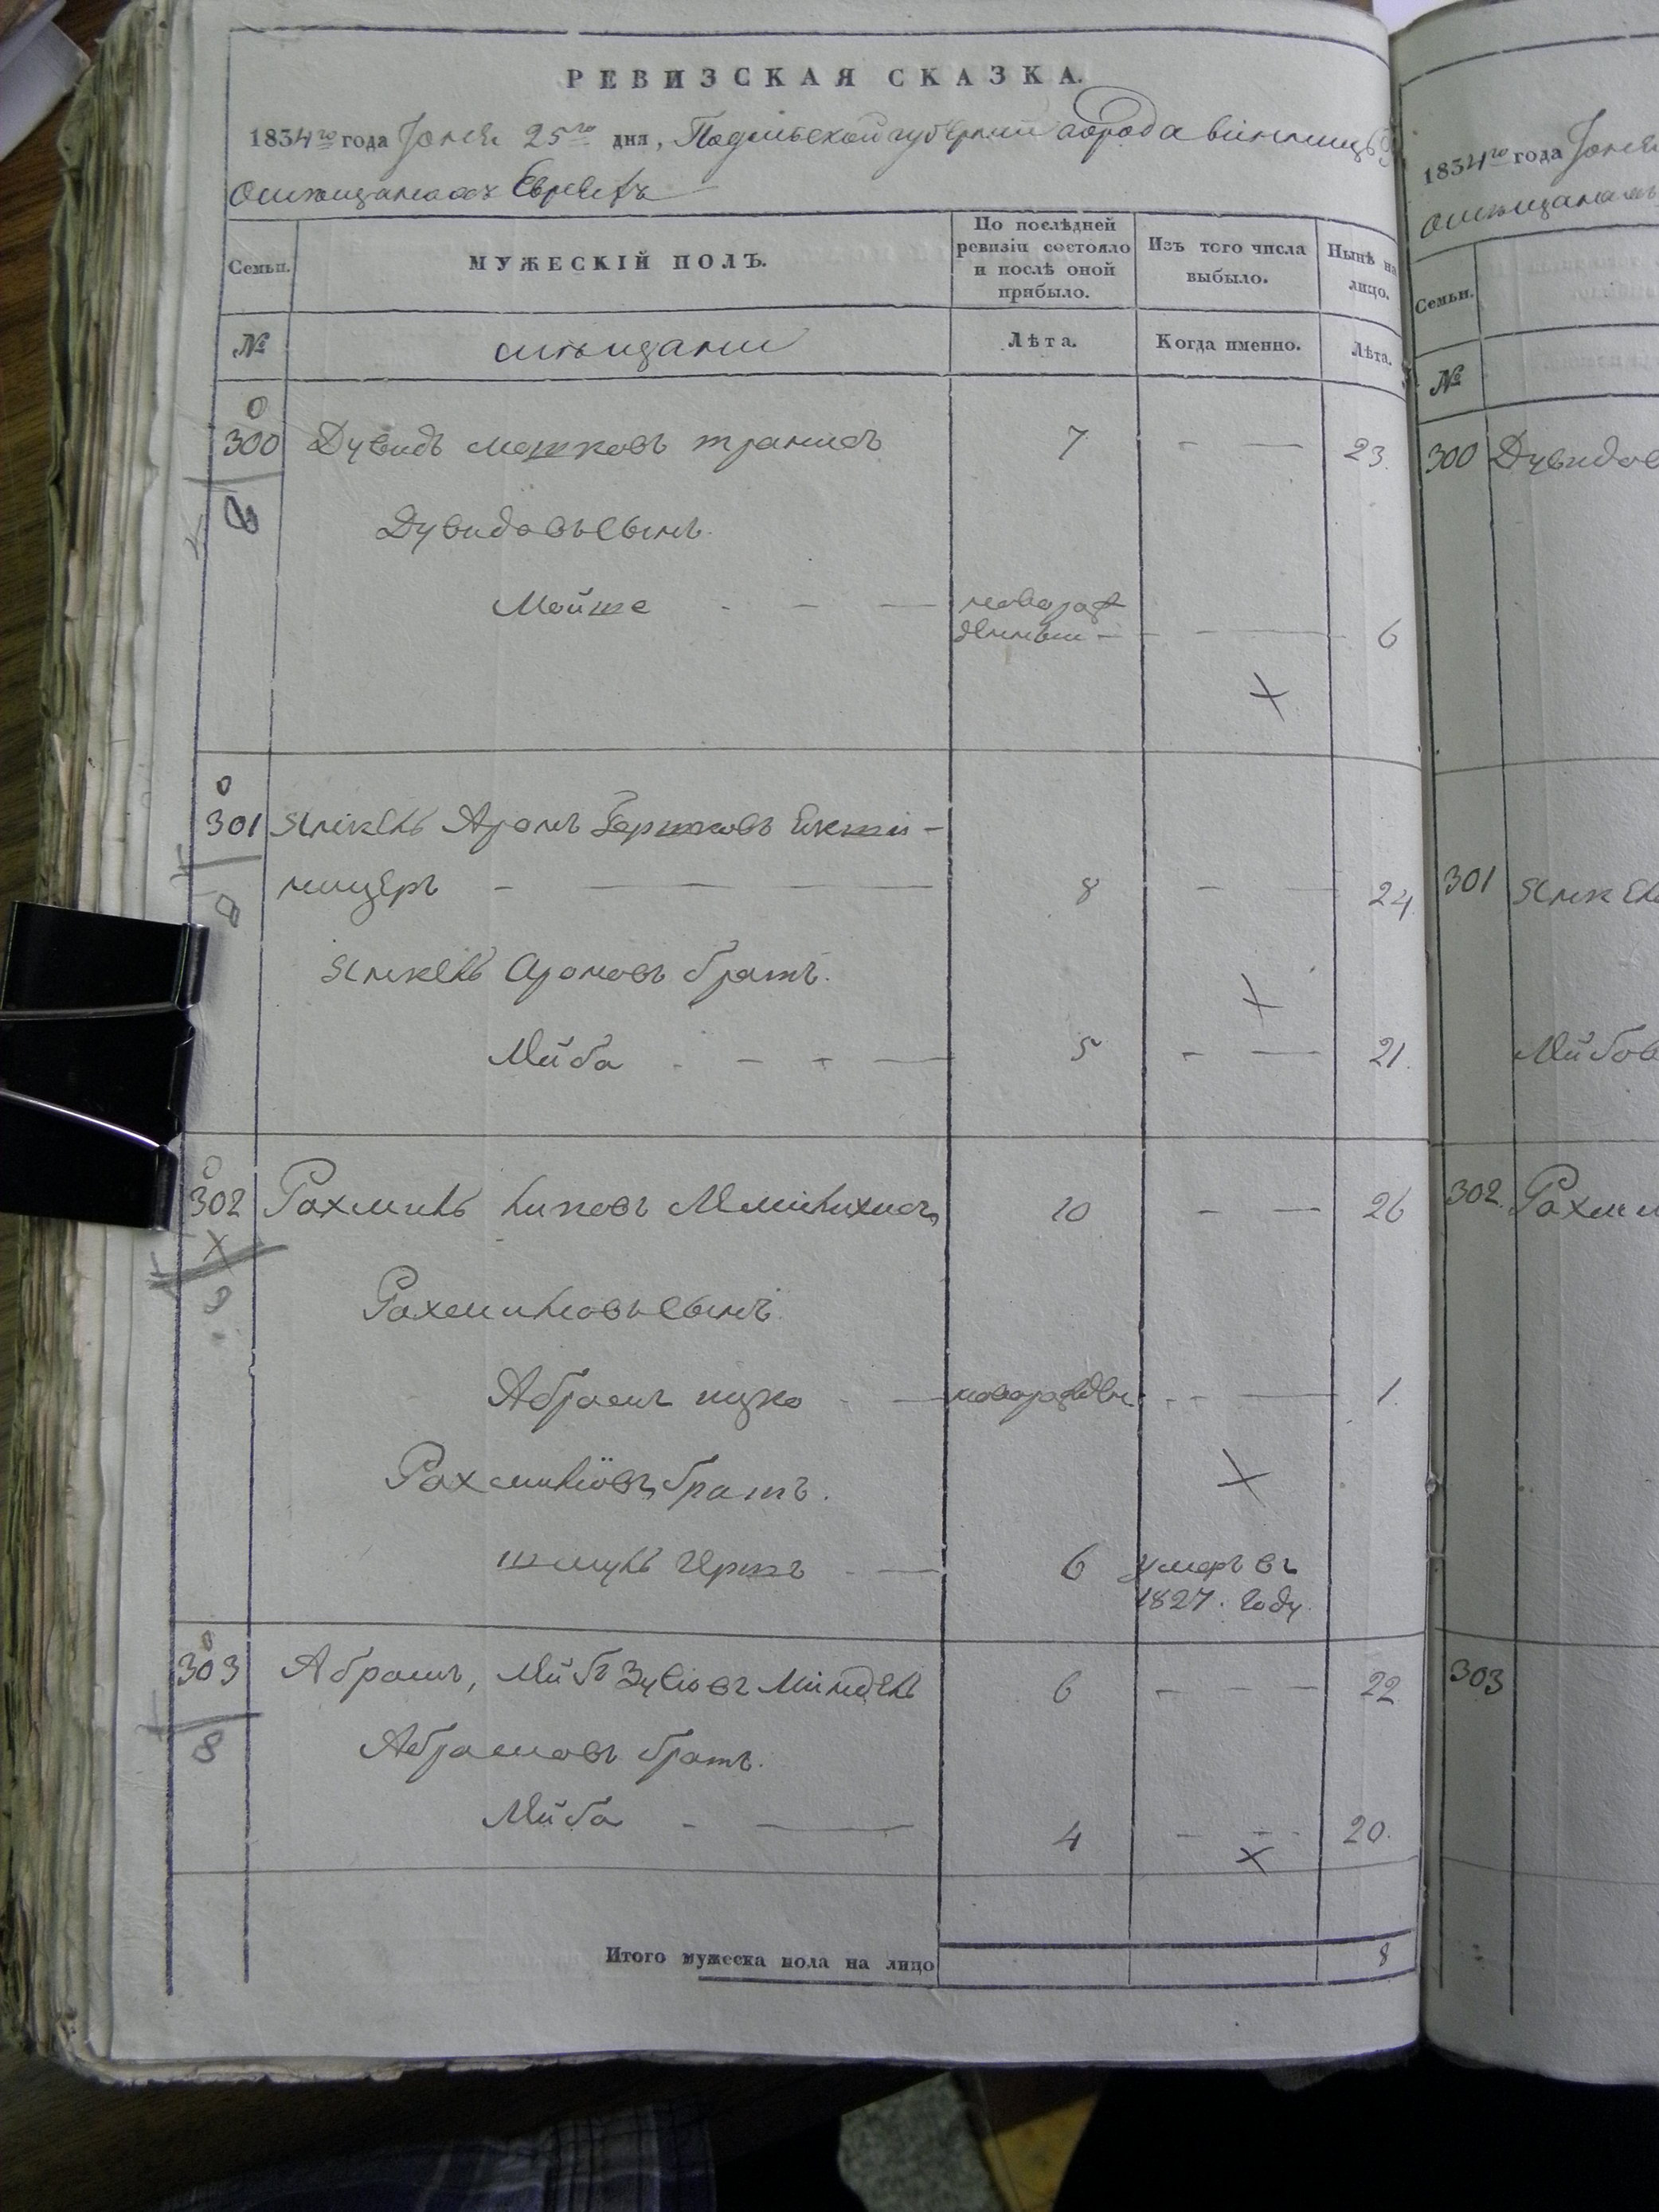 РЕВИЗСКАЯ СКАЗКА.
1834го года Іюня 25го дня, Подольской губерніи города винницы
о мѣщанахъ Евреяхъ
Семьи.
МУЖЕСКІЙ ПОЛЪ.
По послѣдней ревизіи состояло и послѣ оной прибыло.
Изъ того числа выбыло.
Нынѣ на лицо.
№
мѣщани
Лѣта.
Когда именно.
Лѣта.
0
300 Дувидъ мошковъ 7 - — 23.
8
Дувидовъ сынъ.
Мойше - - — новорож
денныи - - — 6
0
301 Янкель Аронъ Берковъ
ницеръ - — — — — 8 - — 24
Янкель Ароновъ братъ.
Лейба - - - — 5 - — 21.
0
302 Рахмиль 10 - — 26
Рахмилювъ сынъ.
Абрамъ ицко - — новорожден - - — 1.
Рахмилювъ братъ.
шмуль - — 6 умеръ въ
1827. году.
0
303 Абрамъ, Лейбъ 6 - - — 22
8
Абрамовъ братъ.
Лейба - — 4 - - - 20.
Итого мужеска пола на лицо 8
1834го года Іюня
о мѣщанахъ
Семьи.
№
300 Дувидов
301 Янкел
Лейбов
302. Рахми
303